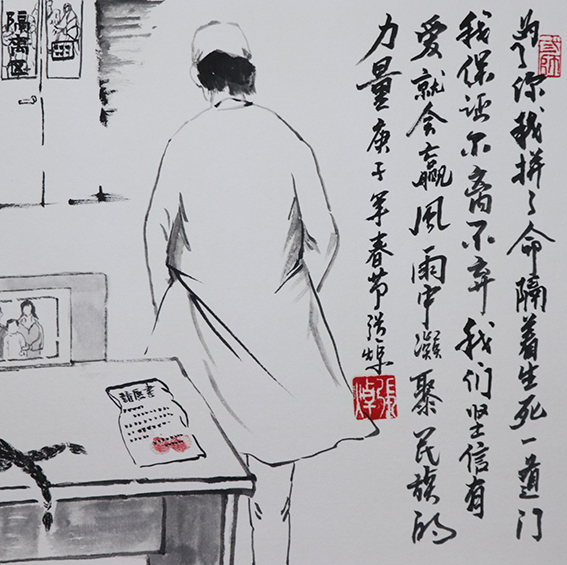 隔离区
为了你我拼了命隔着生死一道门
我保证不离不弃我们坚信有
爱就会赢风雨中凝聚民族的
力量庚子年春节张焯
張焯